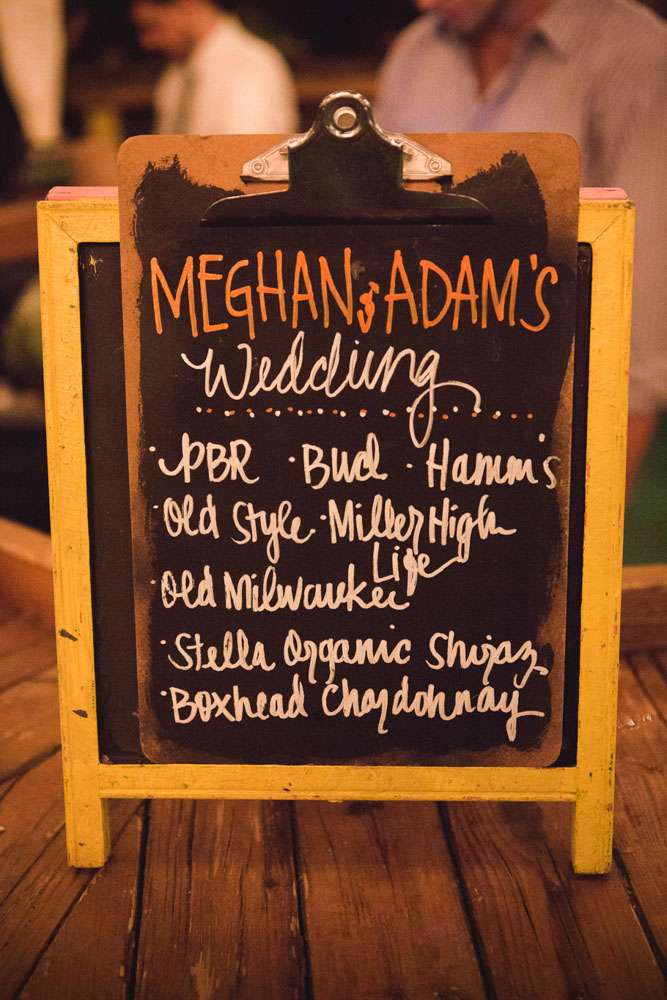 MEGHAN & ADAM'S
Wedding
· PBR · Bud · Hamm's
· Old Style · Miller High
Life
· Old Milwaukee
· Stella Organic Shiraz
· Boxhead Chardonnay